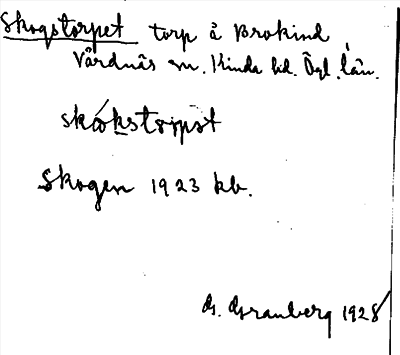 Skogstorpet torp å Brokind
Vårdnäs sn. Kinda hd. Ögl. län.
skókstorpət
Skogen 1923 kb.
G. Granberg 1928